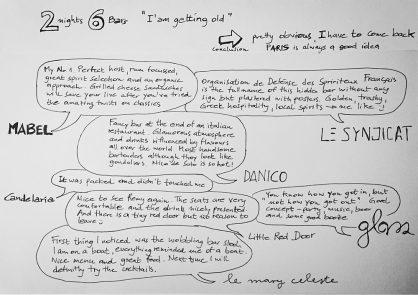 2 nights 6 Bars "I'am getting old"
conclusion
pretty obvious, I have to come back
PARIS is always a good idea
My No 1. Perfect host, rum focussed,
great spirit selection and an organic
approach. Grilled cheese sandwiches
will save your live after you've tried
the amazing twists on classics
MABEL
Organisation de Defense des Spiriteux Français
is the fullname of this hidden bar without any
sign but plastered with posters. Golden, trashy,
Great hospitality, local spirits - me like
LE SYNDICAT
Fancy bar at the end of an italian
restaurant. Glamorous atmosphere
and drinks influenced by flavours
all over the world. Most handsome
bartenders although they look like
gondolas. Nico de Soto is so hot!
DANICO
It was packed and didn't touched me
candelaria
Nice to see Remy again. The seats are very
comfortable and the drinks nicely presented
And there is a tiny red door but no reason to
leave
Little Red Door
You know how you got in, but
"not how you got out" Good
concept - party, music, beer
and some good booze
glass
First thing I noticed was the wobbling bar stool
I am on a boat, everything reminded me of a boat.
Nice menu and great food. Next time I will
definitly try the cocktails.
le mary celeste